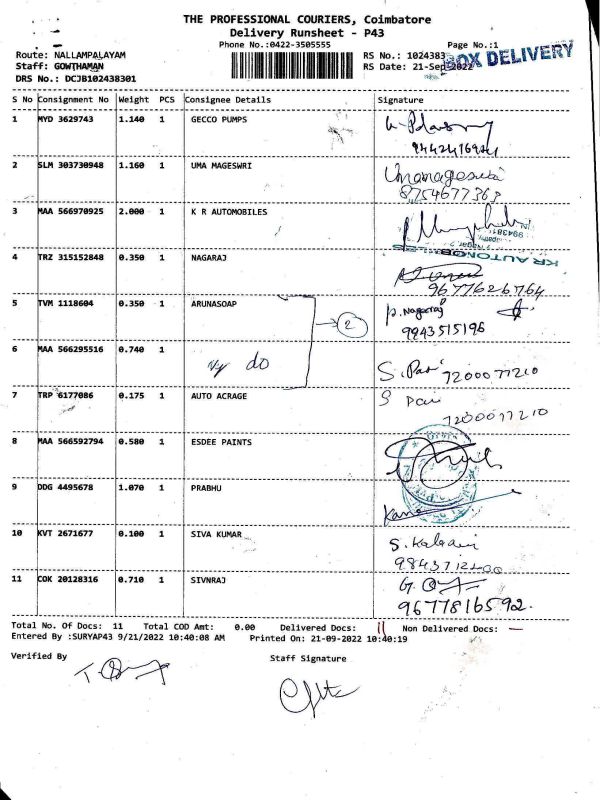 THE PROFESSIONAL COURIERS, Coimbatore
Delivery Runsheet - P43
Phone No.:0422-3505555
Page No.:1
Route: NALLAMPALAYAM
RS No.: 1024383
Staff: GOWTHAMAN
RS Date: 21-Sep-2022
BOX DELIVERY
DRS No.: DCJB102438301
S No Consignment No Weight PCS Consignee Details Signature
1 MYD 3629743 1.140 1 GECCO PUMPS
2 SLM 303730948 1.160 1 UMA MAGESWRI
Umamageswari
8754677363
3 MAA 566970925 2.000 1 K R AUTOMOBILES
KR AUTOMOBILES
4 TRZ 315152848 0.350 1 NAGARAJ
9677626764
5 TVM 1118604 0.350 1 ARUNASOAP
2
P. Nagaraj
9943515196
6 MAA 566295516 0.740 1
do
S. Pari
7200077210
7 TRP 6177086 0.175 1 AUTO ACRAGE
S Pari
7200077210
8 MAA 566592794 0.580 1 ESDEE PAINTS
9 DDG 4495678 1.070 1 PRABHU
10 KVT 2671677 0.100 1 SIVA KUMAR
S. Kalaani
11 COK 20128316 0.710 1 SIVNRAJ
9677816592.
Total No. Of Docs: 11 Total COD Amt: 0.00 Delivered Docs: 11 Non Delivered Docs: —
Entered By :SURYAP43 9/21/2022 10:40:08 AM Printed On: 21-09-2022 10:40:19
Verified By
Staff Signature